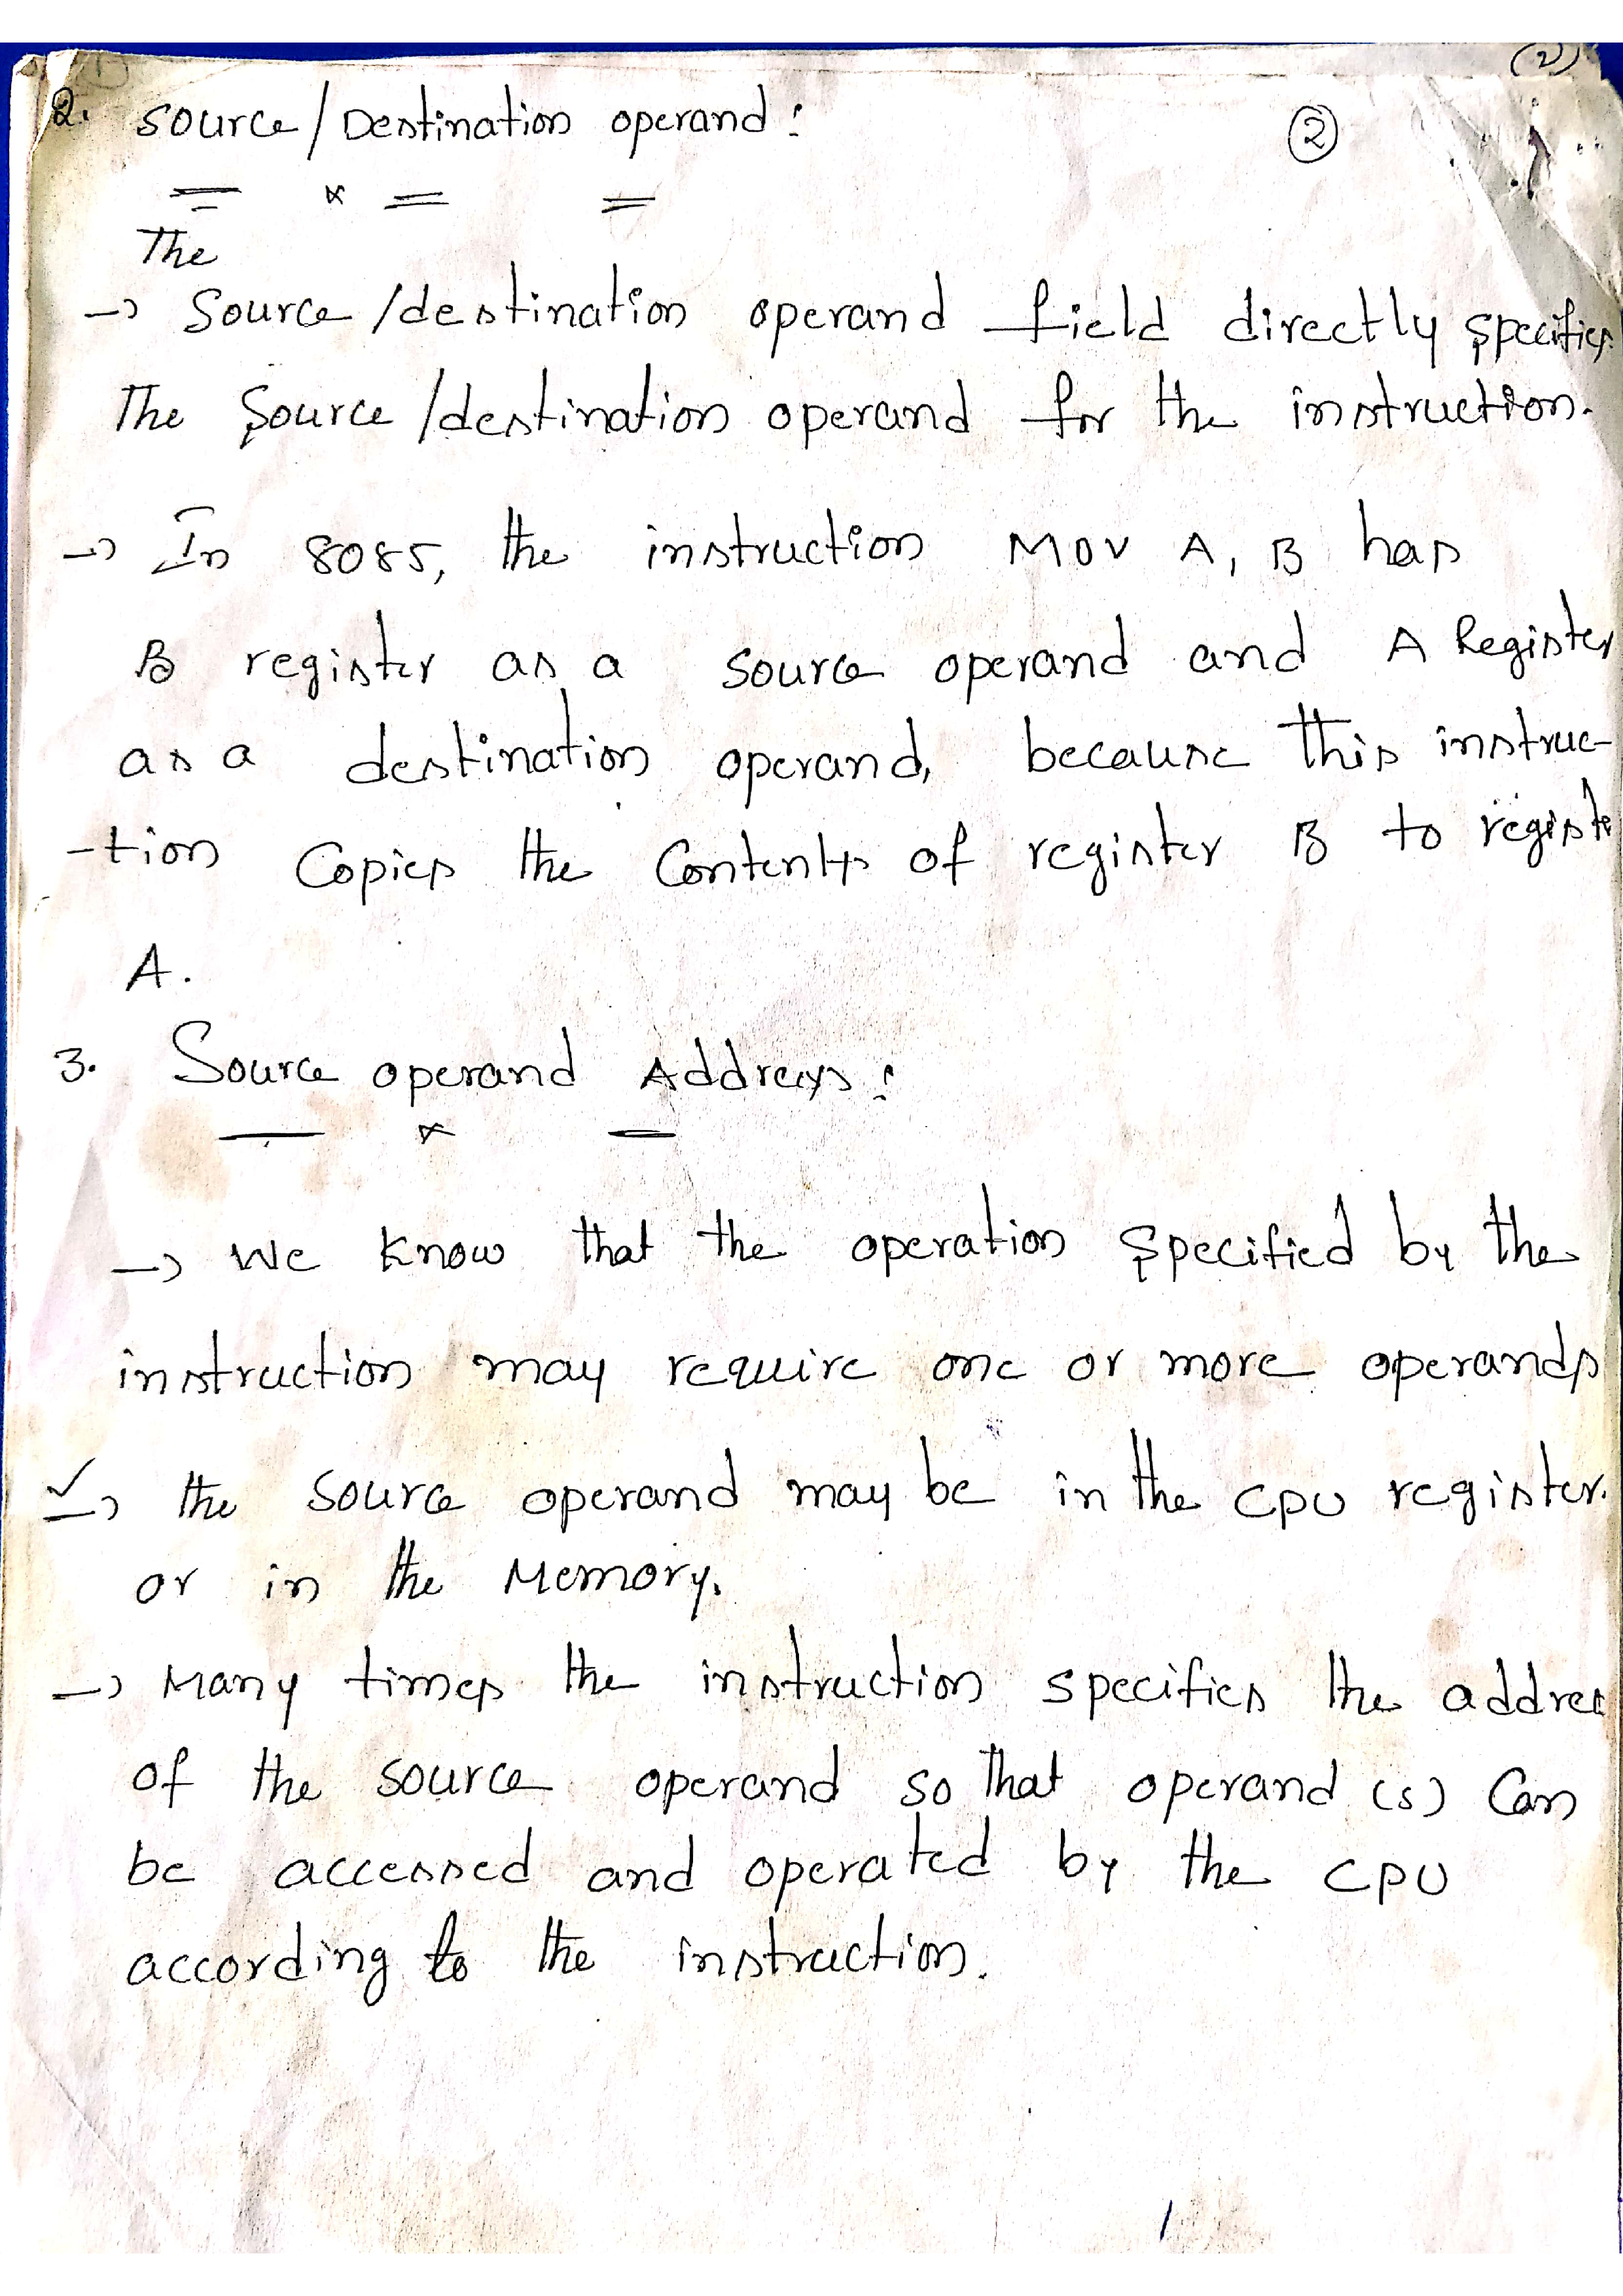 (2)
2. Source/Destination operand :
②
The
→ Source/destination operand field directly specifies
The Source/destination operand for the instruction.
→ In 8085, the instruction MOV A, B has
B register as a source operand and A Register
as a destination operand, because this instruc-
-tion Copies the Contents of register B to registe
A.
3. Source operand Address :
→ We know that the operation specified by the
instruction may require one or more operands
✓→ the source operand may be in the CPU register.
or in the Memory.
→ Many times the instruction specifies the addres
of the source operand so that operand (s) Can
be accessed and operated by the CPU
according to the instruction.